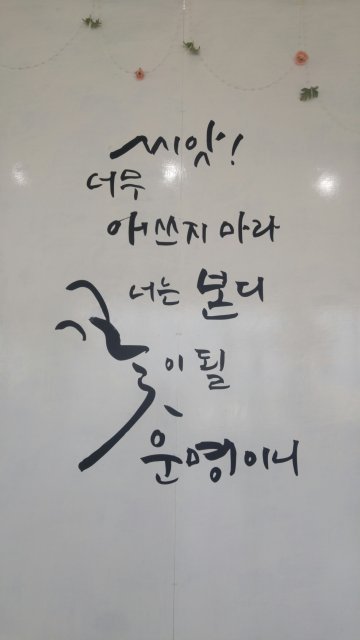 씨앗!
너무
애쓰지 마라
너는 본디
꽃이 될
운명이니